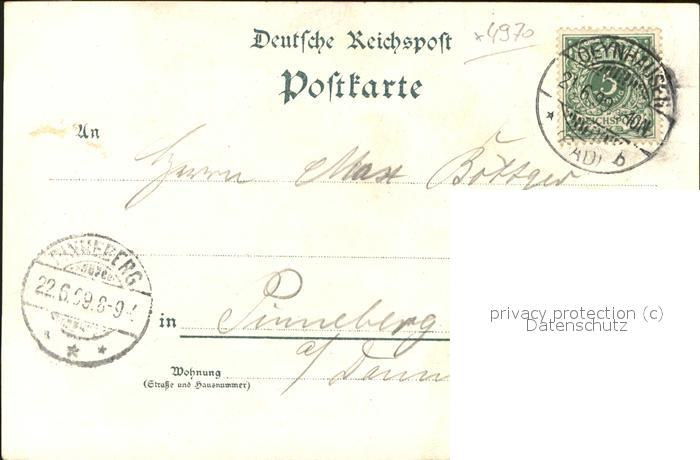 *4970
Deutsche Reichspost
Postkarte
OEYNHAUSEN
21.6.99
(BAD) b
5
REICHSPOST
An
Herrn Max Böttger
PINNEBERG
22.6.99.8-9V
in Pinneberg
a/
Wohnung
(Straße und Hausnummer)
privacy protection (c)
Datenschutz